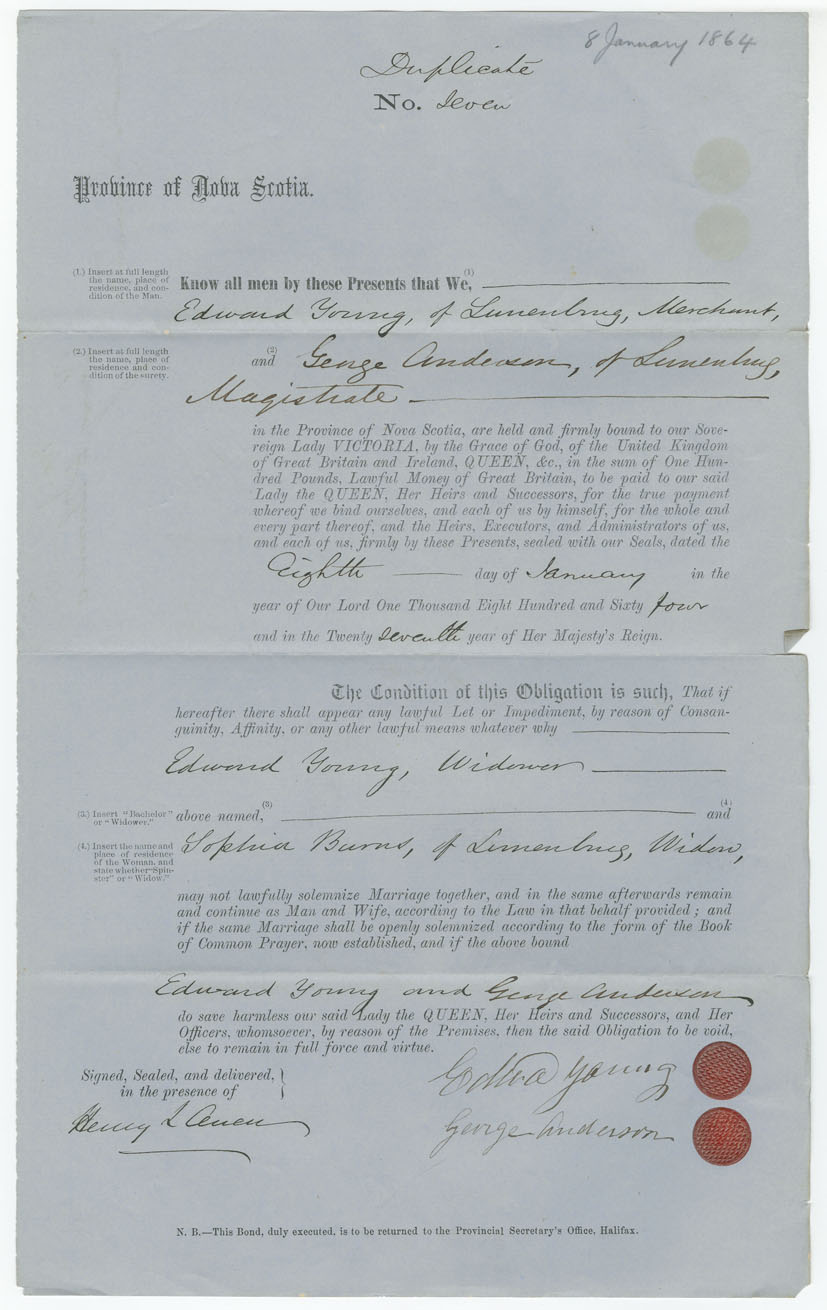 8 January 1864
Duplicate
No. Seven
Province of Nova Scotia.
(1.) Insert at full length
the name, place of
residence, and con-
dition of the Man.
Know all men by these Presents that We, (1)
Edward Young, of Lunenburg, Merchant,
(2.) Insert at full length
the name, place of
residence and con-
dition of the surety.
and (2) George Anderson, of Lunenburg,
Magistrate
in the Province of Nova Scotia, are held and firmly bound to our Sove-
reign Lady VICTORIA, by the Grace of God, of the United Kingdom
of Great Britain and Ireland, QUEEN, &c., in the sum of One Hun-
dred Pounds, Lawful Money of Great Britain, to be paid to our said
Lady the QUEEN, Her Heirs and Successors, for the true payment
whereof we bind ourselves, and each of us by himself, for the whole and
every part thereof, and the Heirs, Executors, and Administrators of us,
and each of us, firmly by these Presents, sealed with our Seals, dated the
Eighth day of January in the
year of Our Lord One Thousand Eight Hundred and Sixty four
and in the Twenty seventh year of Her Majesty's Reign.
The Condition of this Obligation is such, That if
hereafter there shall appear any lawful Let or Impediment, by reason of Consan-
guinity, Affinity, or any other lawful means whatever why
Edward Young, Widower
(3.) Insert "Bachelor"
or "Widower."
above named, (3) and (4)
(4.) Insert the name and
place of residence
of the Woman, and
state whether "Spin-
ster" or "Widow."
Sophia Burns, of Lunenburg, Widow,
may not lawfully solemnize Marriage together, and in the same afterwards remain
and continue as Man and Wife, according to the Law in that behalf provided; and
if the same Marriage shall be openly solemnized according to the form of the Book
of Common Prayer, now established, and if the above bound
Edward Young and George Anderson
do save harmless our said Lady the QUEEN, Her Heirs and Successors, and Her
Officers, whomsoever, by reason of the Premises, then the said Obligation to be void,
else to remain in full force and virtue.
Signed, Sealed, and delivered,
in the presence of
Edwd Young
Henry L
George Anderson
N. B.—This Bond, duly executed, is to be returned to the Provincial Secretary's Office, Halifax.